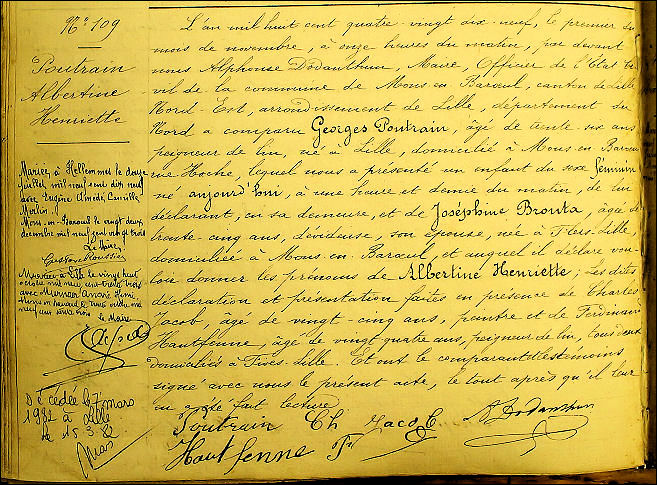 N.º 109
Poutrain
Albertine
Henriette
Mariée à Hellemmes le douze
juillet mil neuf cent dix neuf
avec Eugène Amédé Camille
Merlin.
Mons-en-Baroeul le vingt deux
décembre mil neuf cent vingt trois
Le Maire,
Mariée à Lille le vingt huit
octobre mil neuf cent trente trois
avec
neuf cent trente trois
Le Maire
Décédée le 7 mars
1982 à Lille
Le 15.3.82
L'an mil huit cent quatre-vingt dix-neuf, le premier du
mois de novembre, à onze heures du matin, par devant
nous Alphonse Dodanthun, Maire, Officier de l'Etat Ci-
vil de la commune de Mons-en-Baroeul, canton de Lille
Nord-Est, arrondissement de Lille, département du
Nord a comparu Georges Poutrain, âgé de trente-six ans
peigneur de lin, né à Lille, domicilié à Mons-en-Baroeul
rue Hoche, lequel nous a présenté un enfant du sexe féminin
né aujourd'hui, à une heure et demie du matin, de lui
déclarant, en sa demeure, et de Joséphine Brouta, âgée de
trente-cinq ans, dévideuse, son épouse, née à Flers-Lille,
domiciliée à Mons-en-Baroeul, et auquel il déclare vou-
loir donner les prénoms de Albertine Henriette; Les dites
déclaration et présentation faites en présence de Charles
Jacob, âgé de vingt-cinq ans, peintre et de Ferdinand
Hautfenne, âgé de vingt quatre ans, peigneur de lin, tous deux
domiciliés à Fives-Lille. Et ont le comparant et les témoins
signé avec nous le présent acte, le tout après qu'il leur
en a été fait lecture.
Poutrain Ch Jacob A Dodanthun
Hautfenne Fr